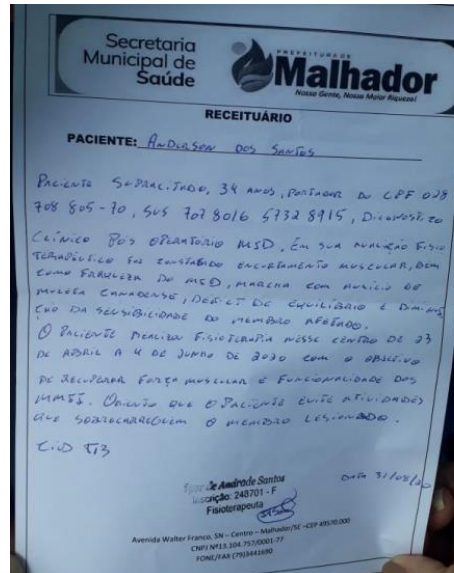 Secretaria
Municipal de
Saúde
PREFEITURA DE
Malhador
Nossa Gente, Nossa Maior Riqueza!
RECEITUÁRIO
PACIENTE: ANDERSON DOS SANTOS
PACIENTE SUPRACITADO, 34 ANOS, PORTADOR DO CPF 028
708 805-70, SUS 707 8016 5732 8915, DIAGNOSTICO
CLÍNICO PÓS OPERATÓRIO MSD. EM SUA AVALIAÇÃO FISIO
TERAPÊUTICO FOI CONSTATADO ENCURTAMENTO MUSCULAR, BEM
COMO FRAQUEZA DO MSD, MARCHA COM AUXILIO DE
MULETA CANADENSE, DEFICIT DE EQUILÍBRIO E DIMINUI
ÇÃO DA SENSIBILIDADE DO MEMBRO AFETADO.
O PACIENTE REALIZOU FISIOTERAPIA NESSE CENTRO DE 23
DE ABRIL A 4 DE JUNHO DE 2020 COM O OBJETIVO
DE RECUPERAR FORÇA MUSCULAR E FUNCIONALIDADE DOS
MMII. ORIENTO QUE O PACIENTE EVITE ATIVIDADES
QUE SOBRECARREGUEM O MEMBRO LESIONADO.
CID T13
de Andrade Santos
Inscrição: 248701 - F
Fisioterapeuta
DATA 31/08/20
Avenida Walter Franco, SN – Centro – Malhador/SE –CEP 49570.000
CNPJ Nº13.104.757/0001-77
FONE/FAX (79)3441690